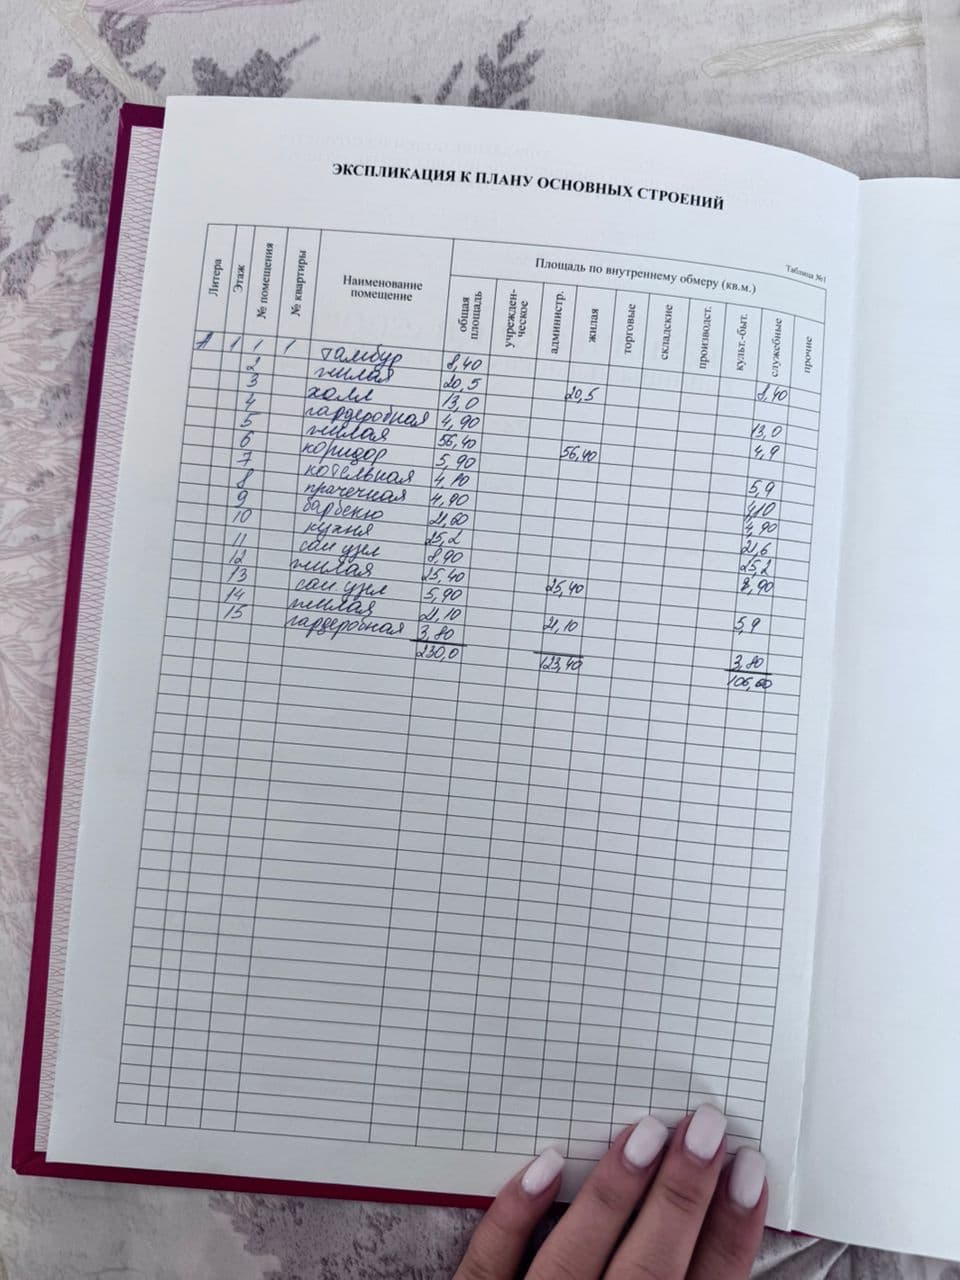 ЭКСПЛИКАЦИЯ К ПЛАНУ ОСНОВНЫХ СТРОЕНИЙ
Таблица №1
Литера Этаж № помещения № квартиры Наименование помещение Площадь по внутреннему обмеру (кв.м.)
общая площадь учрежден-ческое администр. жилая торговые складские производст. культ.-быт. служебные прочие
А 1 1 1 тамбур 8,40 8,40
2 жилая 20,5 20,5
3 холл 13,0 13,0
4 гардеробная 4,90 4,9
5 жилая 56,40 56,40
6 коридор 5,90 5,9
7 котельная 4,10 4,10
8 прачечная 4,90 4,90
9 барбекю 21,60 21,6
10 кухня 25,2 25,2
11 сан узел 8,90 8,90
12 жилая 25,40 25,40
13 сан узел 5,90 5,9
14 жилая 21,10 21,10
15 гардеробная 3,80 3,80
230,0 123,40 106,60